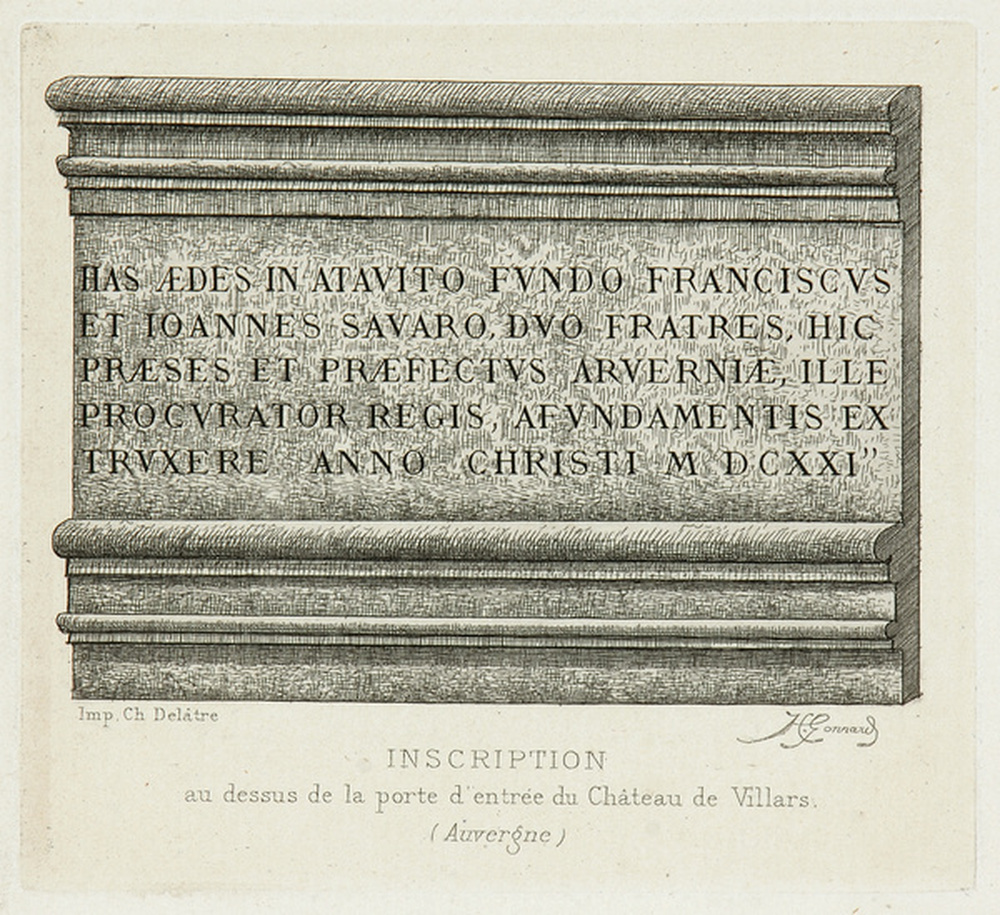 HAS ÆDES IN ATAVITO FVNDO FRANCISCVS
ET IOANNES SAVARO, DVO FRATRES, HIC
PRÆSES ET PRÆFECTVS ARVERNIÆ, ILLE
PROCVRATOR REGIS, AFVNDAMENTIS EX
TRVXERE ANNO CHRISTI M DCXXI"
Imp. Ch Delâtre
H. Gonnard
INSCRIPTION
au dessus de la porte d'entrée du Château de Villars.
(Auvergne)